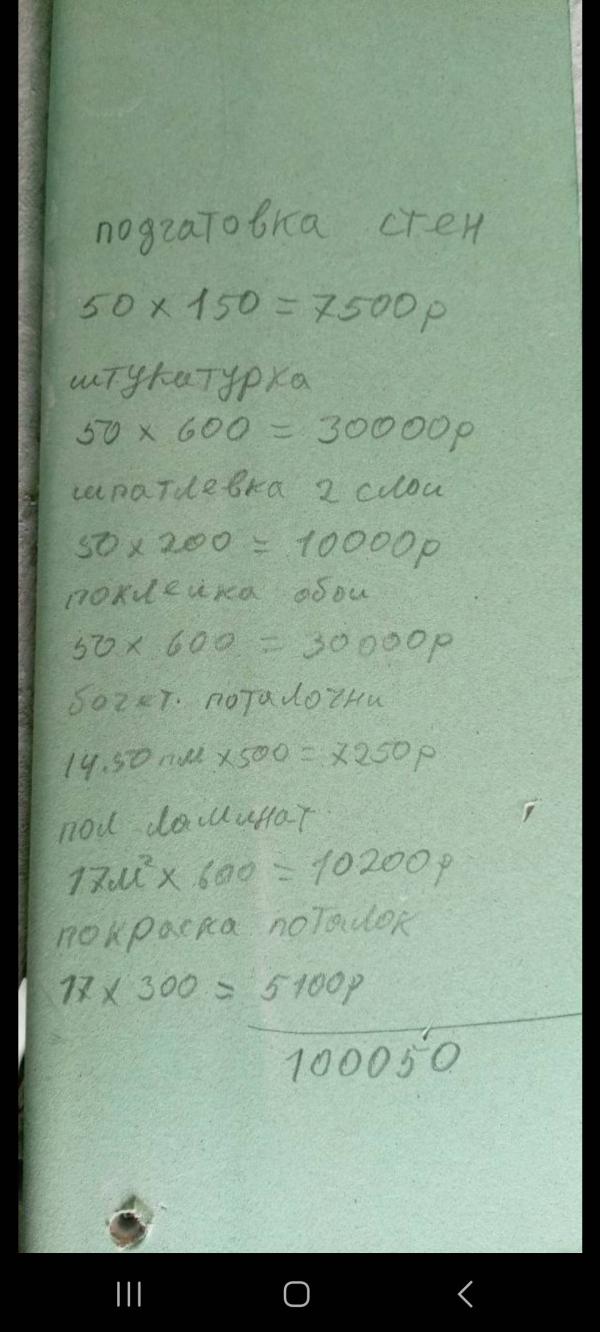 подгатовка стен
50 x 150 = 7500р
штукатурка
50 x 600 = 30000р
шпатлевка 2 слои
50 x 200 = 10000р
поклейка обои
50 x 600 = 30000р
поталочни
14.50 пм x 500 = 7250р
пол ламинат
17м² x 600 = 10200р
покраска поталок
17 x 300 = 5100р
100050